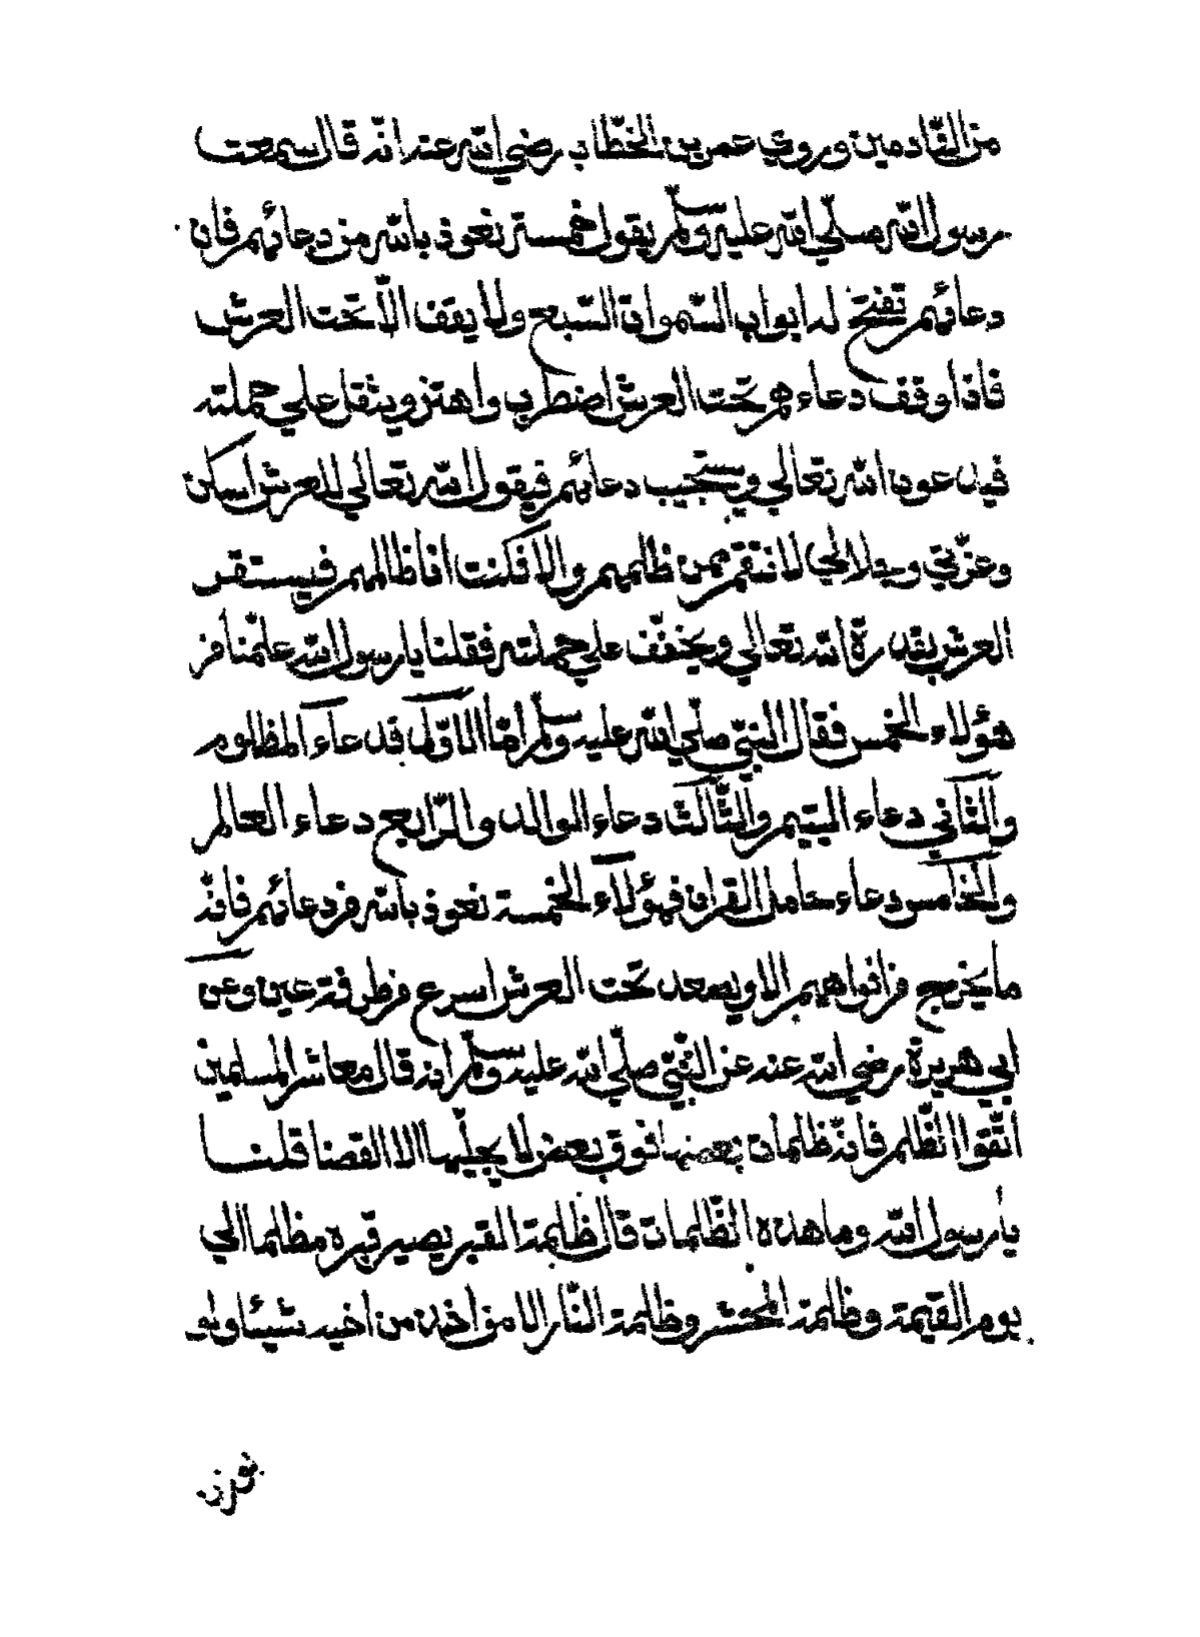 من القادمين وروي عمر بن الخطّاب رضي الله عنه انّه قال سمعت
رسول الله صلّي الله عليه وسلّم يقول خمسة نعوذ بالله من دعائهم فان
دعائهم تفتح له ابواب السّموات السّبع ولا يقف الّا تحت العرش
فاذا وقف دعاءهم تحت العرش اضطرب واهتز ويثقل علي حملته
فيدعون الله تعالي ويستجيب دعائهم فيقول الله تعالي للعرش اسكن
وعزّتي وجلالي لانتقم ممن ظلمهم والا فكنت انا ظالمهم فيستقر
العرش بقدرة الله تعالي ويخفّف علي حملته فقلنا يا رسول الله علّمنا من
هؤلاء الخمس فقال النبيّ صلّي الله عليه وسلّم امّا الاوّل فدعاء المظلوم
والثاني دعاء اليتيم والثّالث دعاء الوالد والرّابع دعاء العالم
والخامس دعاء حامل القران فهؤلاء الخمسة نعوذ بالله من دعائهم فانّه
ما يخرج من افواههم الا ويصعد تحت العرش اسرع من طرفة عين وعن
ابي هريرة رضي الله عنه عن النّبيّ صلّي الله عليه وسلّم انه قال معاشر المسلمين
اتّقوا الظّلم فانّه ظلمات بعضها فوق بعض لا يجلّيها الا القضا قلنا
يا رسول الله وما هذه الظّلمات قال ظلمة القبر يصير قبره مظلما الي
يوم القيمة وظلمة المحشر وظلمة النّار الا من اخذ من اخيه شيئا ولو